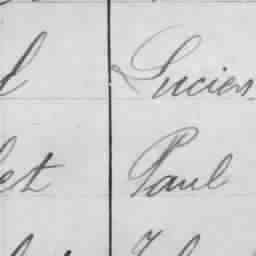 l Lucien
et Paul